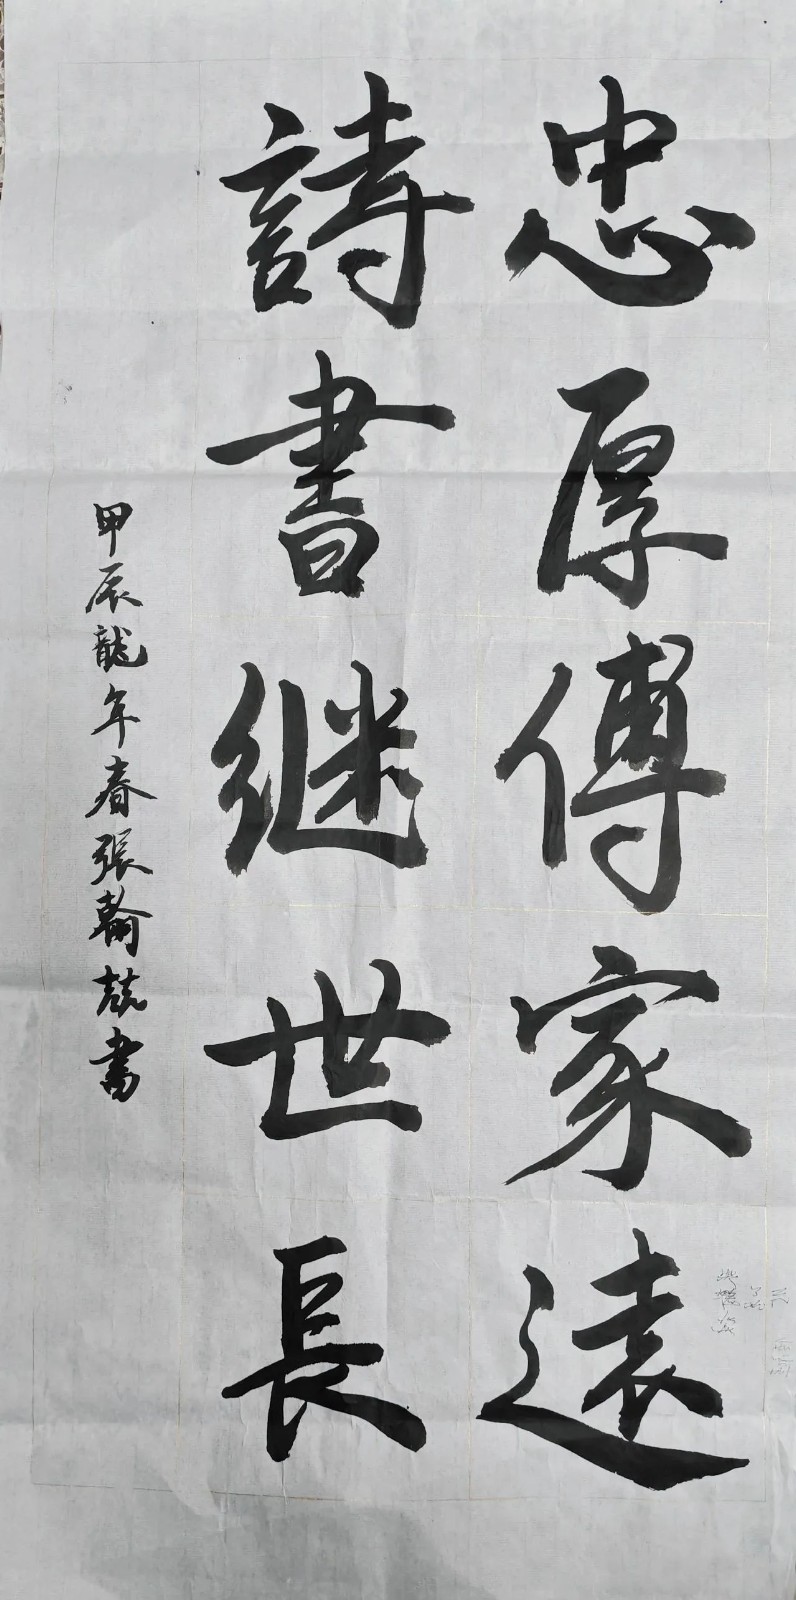 忠厚傳家遠
詩書继世長
甲辰龍年春張翰兢書